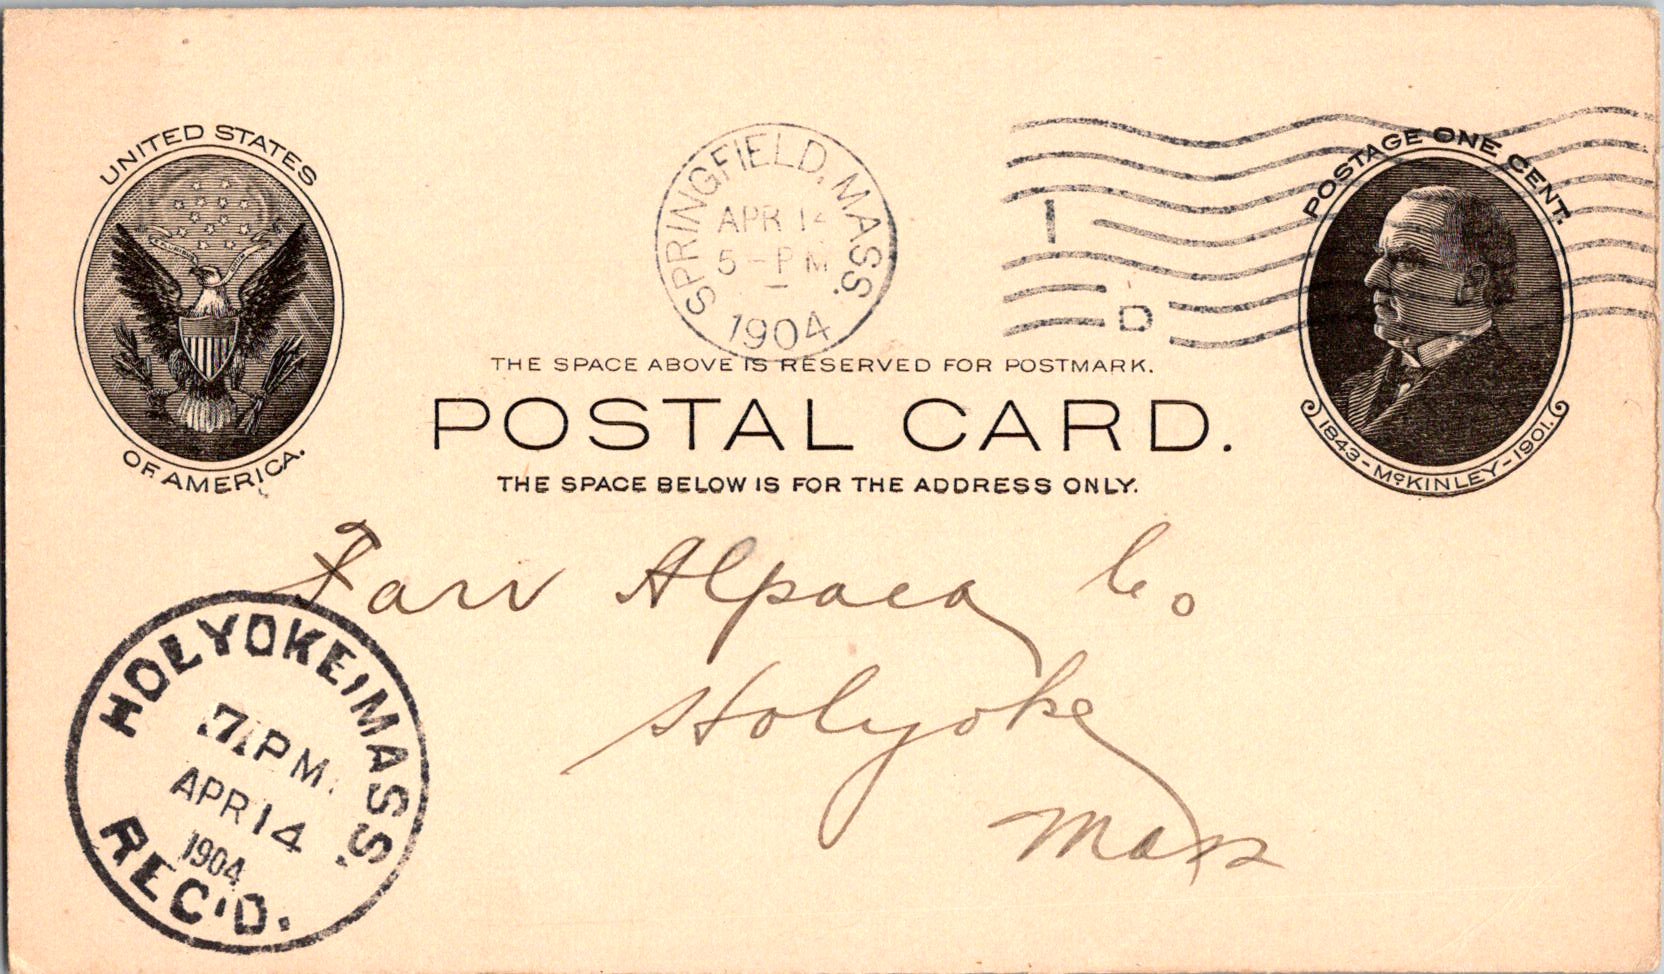 UNITED STATES
OF AMERICA.
SPRINGFIELD, MASS.
APR 14
5-PM
1904
I
D
POSTAGE ONE CENT.
1843-McKINLEY-1901.
THE SPACE ABOVE IS RESERVED FOR POSTMARK.
POSTAL CARD.
THE SPACE BELOW IS FOR THE ADDRESS ONLY.
Farr Alpaca Co
Holyoke
Mass
HOLYOKE, MASS.
7 PM
APR 14
1904
REC'D.